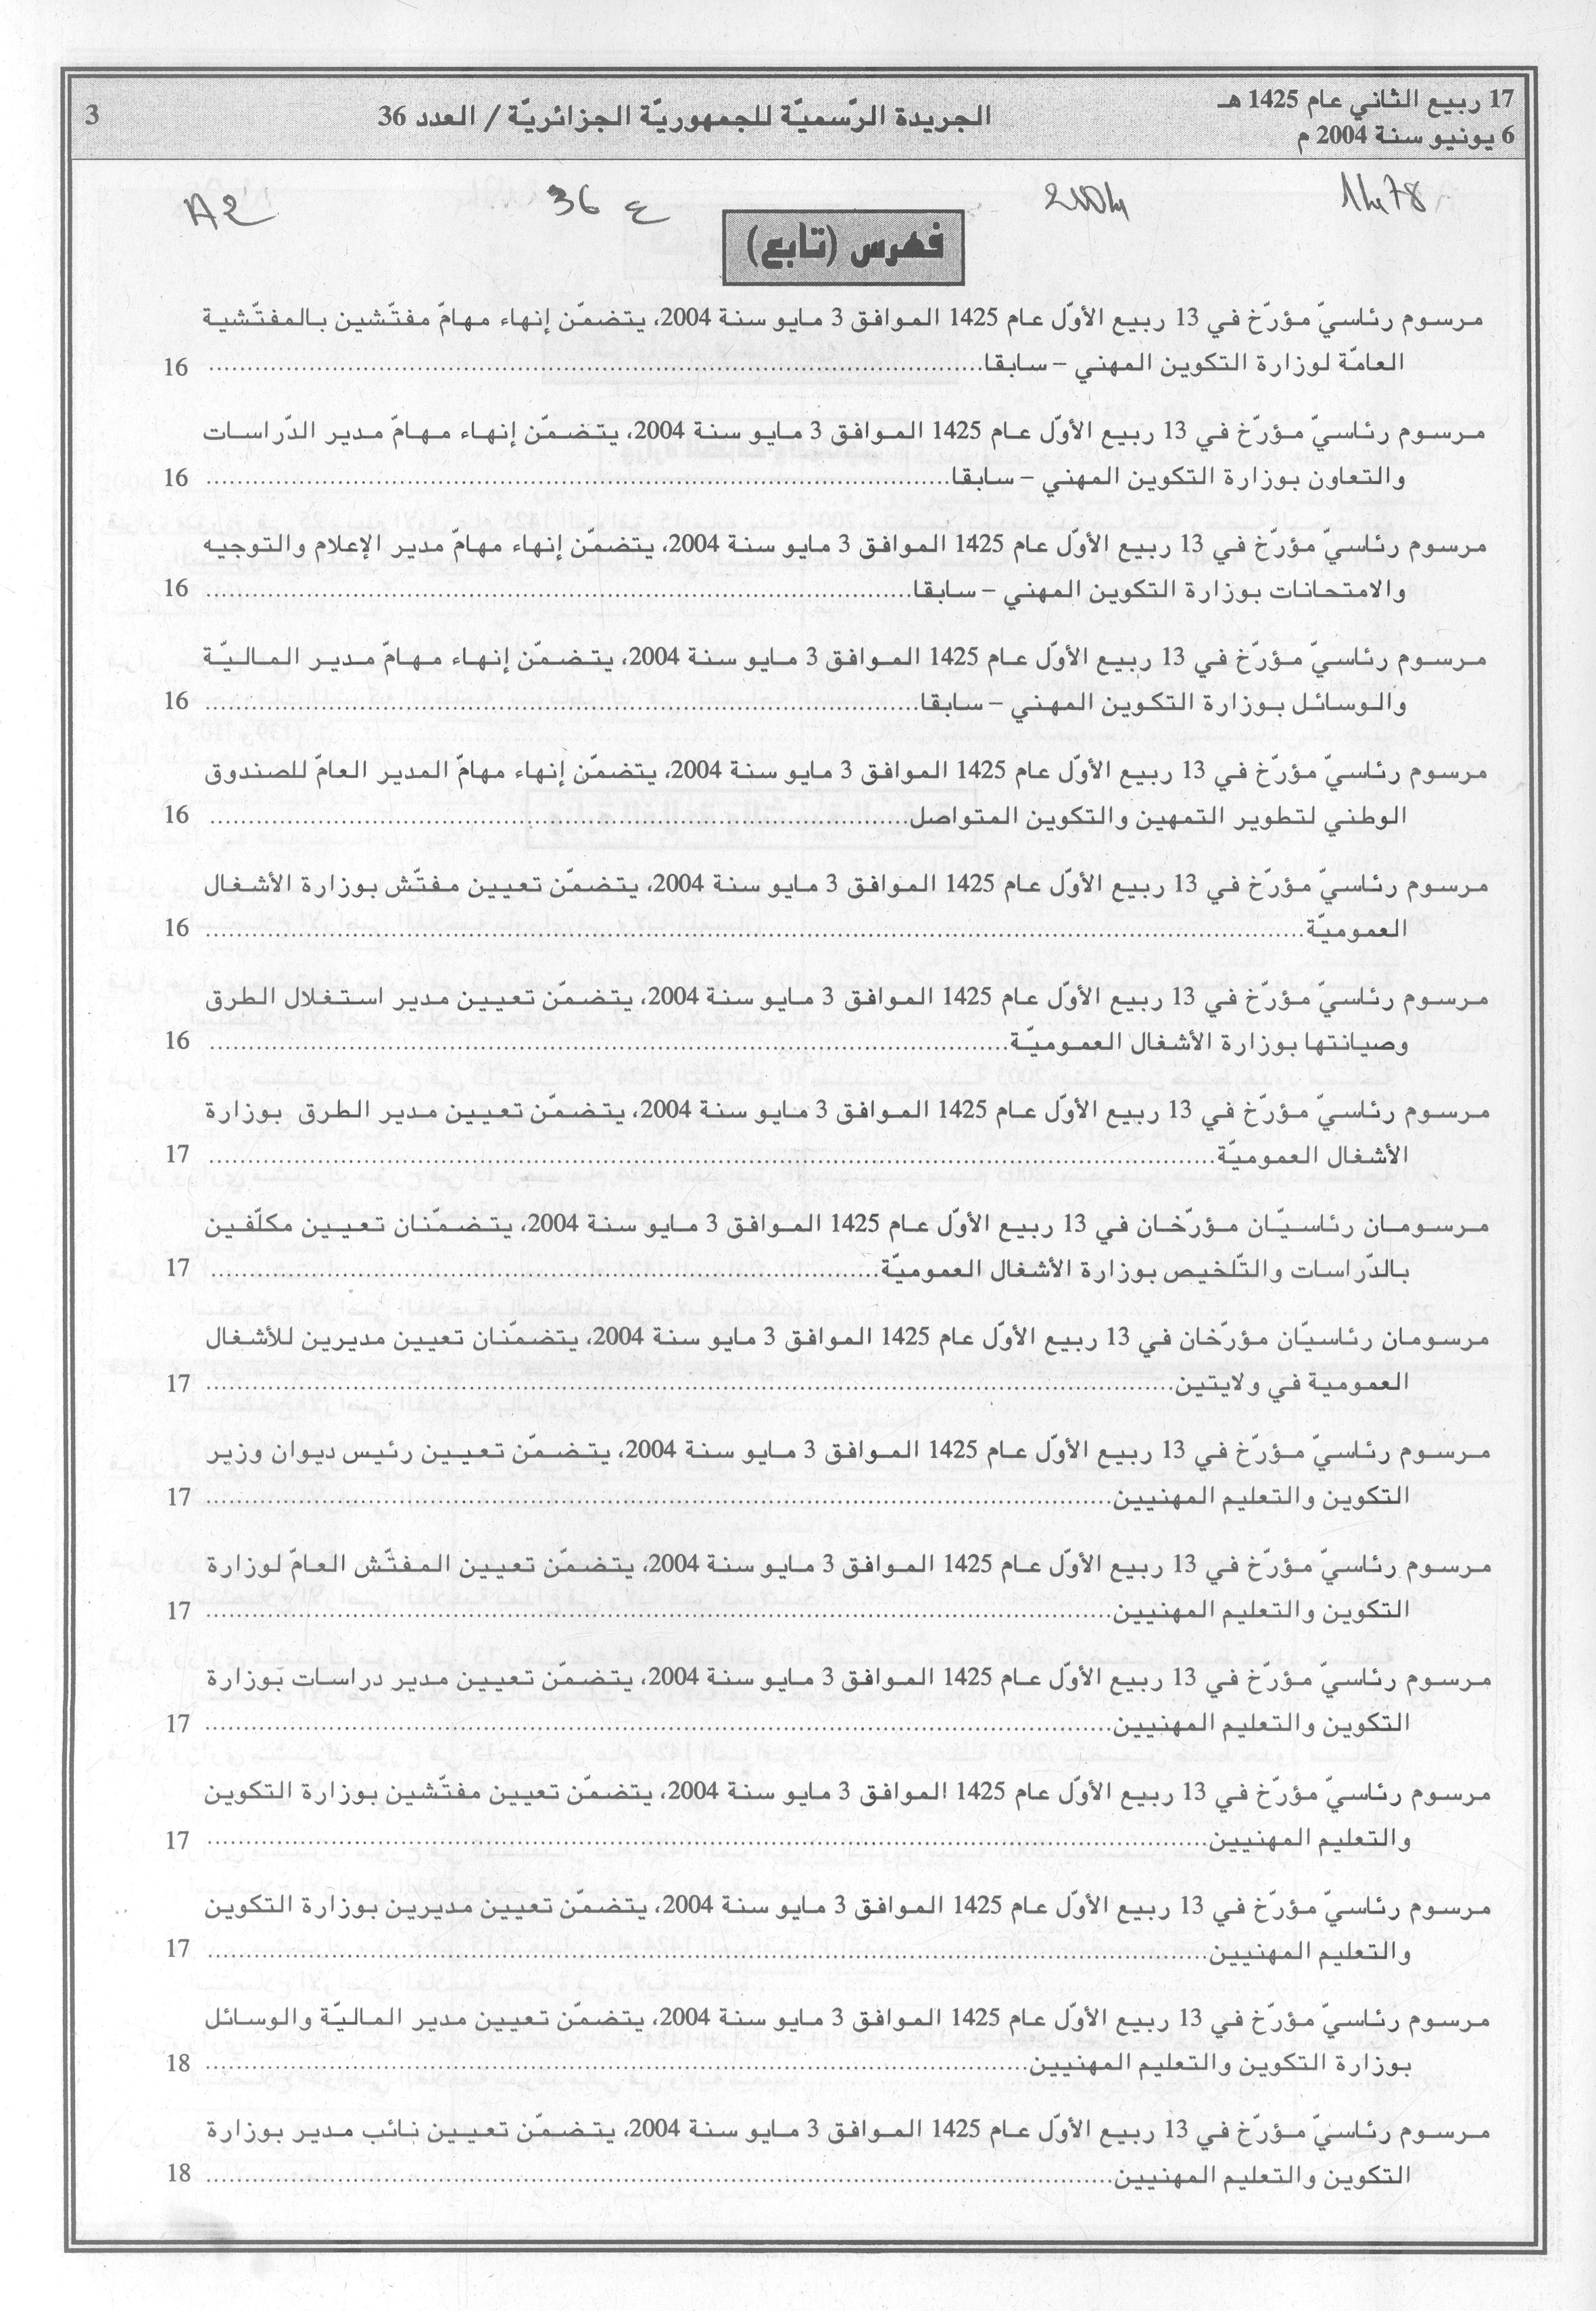 17 ربيع الثاني عام 1425 هـ
6 يونيو سنة 2004 م
الجريدة الرّسميّة للجمهوريّة الجزائريّة / العدد 36
3
1478
2004
ع 36
A2
فهرس (تابع)
مرسوم رئاسيّ مؤرّخ في 13 ربيع الأوّل عام 1425 الموافق 3 مايو سنة 2004، يتضمّن إنهاء مهامّ مفتّشين بالمفتّشية
العامّة لوزارة التكوين المهني – سابقا.......... 16
مرسوم رئاسيّ مؤرّخ في 13 ربيع الأوّل عام 1425 الموافق 3 مايو سنة 2004، يتضمّن إنهاء مهامّ مدير الدّراسات
والتعاون بوزارة التكوين المهني – سابقا.......... 16
مرسوم رئاسيّ مؤرّخ في 13 ربيع الأوّل عام 1425 الموافق 3 مايو سنة 2004، يتضمّن إنهاء مهامّ مدير الإعلام والتوجيه
والامتحانات بوزارة التكوين المهني – سابقا.......... 16
مرسوم رئاسيّ مؤرّخ في 13 ربيع الأوّل عام 1425 الموافق 3 مايو سنة 2004، يتضمّن إنهاء مهامّ مدير الماليّة
والوسائل بوزارة التكوين المهني – سابقا.......... 16
مرسوم رئاسيّ مؤرّخ في 13 ربيع الأوّل عام 1425 الموافق 3 مايو سنة 2004، يتضمّن إنهاء مهامّ المدير العامّ للصندوق
الوطني لتطوير التمهين والتكوين المتواصل.......... 16
مرسوم رئاسيّ مؤرّخ في 13 ربيع الأوّل عام 1425 الموافق 3 مايو سنة 2004، يتضمّن تعيين مفتّش بوزارة الأشغال
العموميّة.......... 16
مرسوم رئاسيّ مؤرّخ في 13 ربيع الأوّل عام 1425 الموافق 3 مايو سنة 2004، يتضمّن تعيين مدير استغلال الطرق
وصيانتها بوزارة الأشغال العموميّة.......... 16
مرسوم رئاسيّ مؤرّخ في 13 ربيع الأوّل عام 1425 الموافق 3 مايو سنة 2004، يتضمّن تعيين مدير الطرق بوزارة
الأشغال العموميّة.......... 17
مرسومان رئاسيّان مؤرّخان في 13 ربيع الأوّل عام 1425 الموافق 3 مايو سنة 2004، يتضمّنان تعيين مكلّفين
بالدّراسات والتّلخيص بوزارة الأشغال العموميّة.......... 17
مرسومان رئاسيّان مؤرّخان في 13 ربيع الأوّل عام 1425 الموافق 3 مايو سنة 2004، يتضمّنان تعيين مديرين للأشغال
العمومية في ولايتين.......... 17
مرسوم رئاسيّ مؤرّخ في 13 ربيع الأوّل عام 1425 الموافق 3 مايو سنة 2004، يتضمّن تعيين رئيس ديوان وزير
التكوين والتعليم المهنيين.......... 17
مرسوم رئاسيّ مؤرّخ في 13 ربيع الأوّل عام 1425 الموافق 3 مايو سنة 2004، يتضمّن تعيين المفتّش العامّ لوزارة
التكوين والتعليم المهنيين.......... 17
مرسوم رئاسيّ مؤرّخ في 13 ربيع الأوّل عام 1425 الموافق 3 مايو سنة 2004، يتضمّن تعيين مدير دراسات بوزارة
التكوين والتعليم المهنيين.......... 17
مرسوم رئاسيّ مؤرّخ في 13 ربيع الأوّل عام 1425 الموافق 3 مايو سنة 2004، يتضمّن تعيين مفتّشين بوزارة التكوين
والتعليم المهنيين.......... 17
مرسوم رئاسيّ مؤرّخ في 13 ربيع الأوّل عام 1425 الموافق 3 مايو سنة 2004، يتضمّن تعيين مديرين بوزارة التكوين
والتعليم المهنيين.......... 17
مرسوم رئاسيّ مؤرّخ في 13 ربيع الأوّل عام 1425 الموافق 3 مايو سنة 2004، يتضمّن تعيين مدير الماليّة والوسائل
بوزارة التكوين والتعليم المهنيين.......... 18
مرسوم رئاسيّ مؤرّخ في 13 ربيع الأوّل عام 1425 الموافق 3 مايو سنة 2004، يتضمّن تعيين نائب مدير بوزارة
التكوين والتعليم المهنيين.......... 18